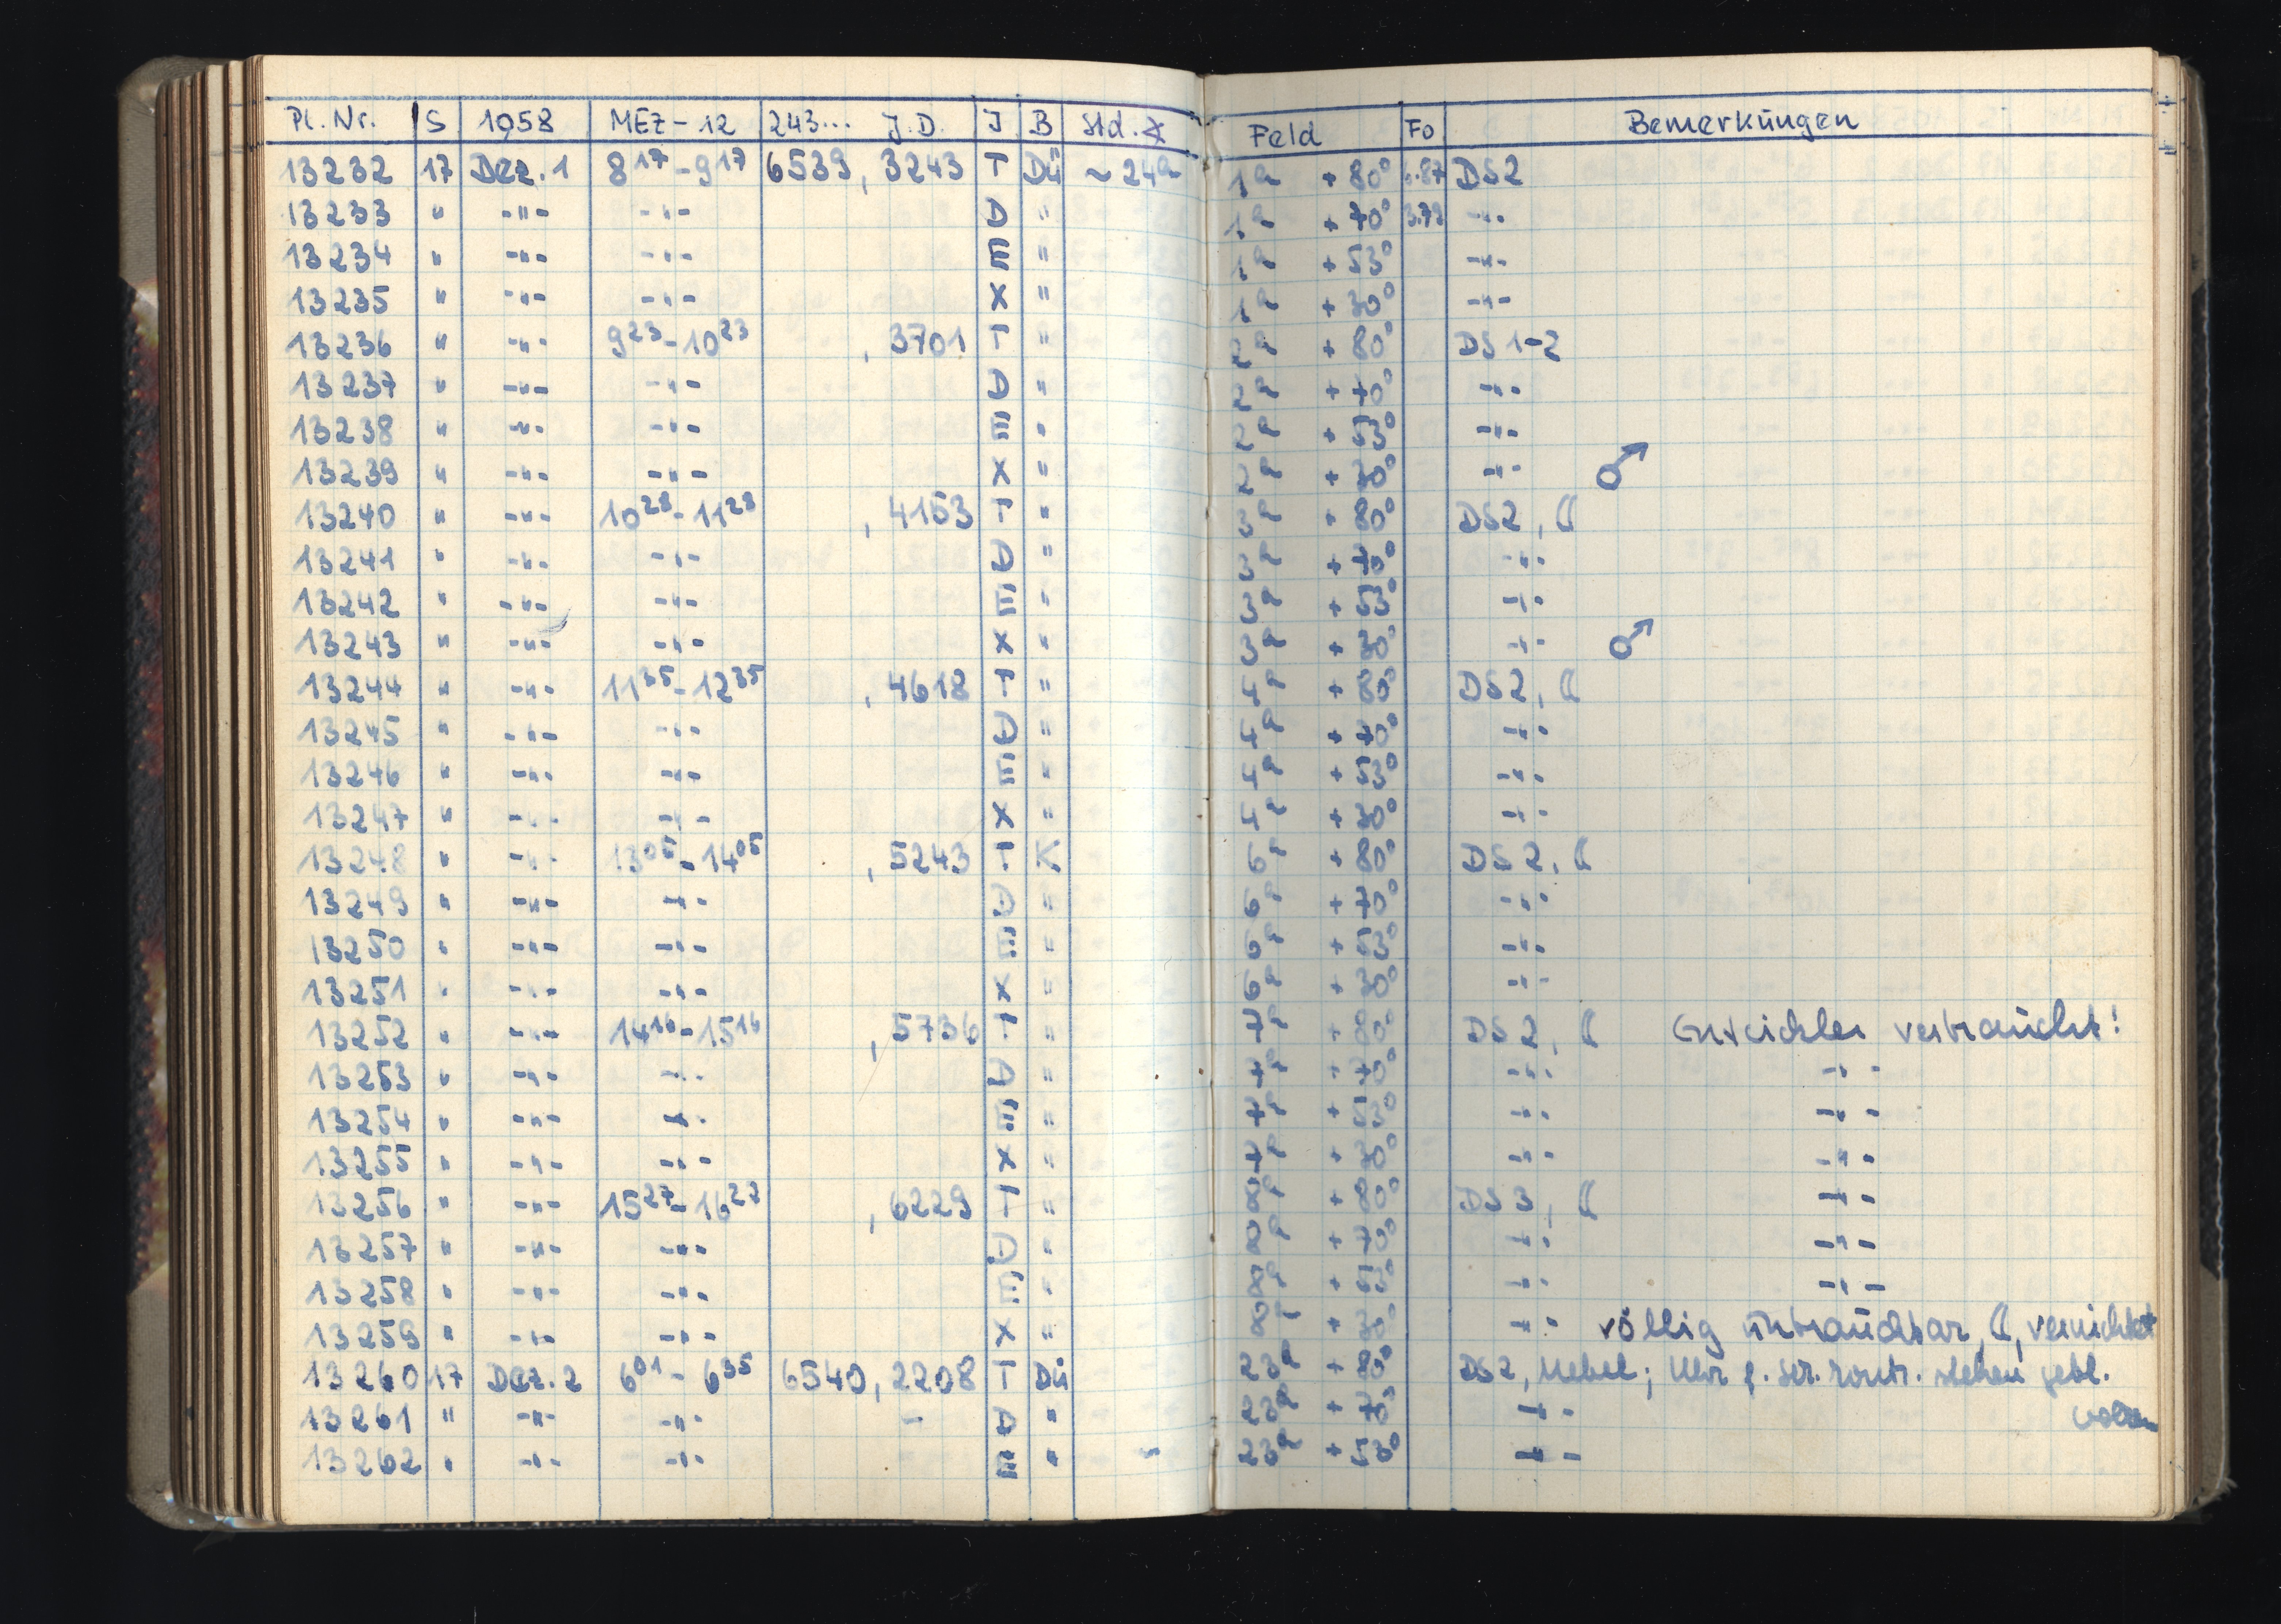 Pl. Nr. S 1958 MEZ - 12 243... J.D. J B Std. ∡ Feld Fo Bemerkungen
13232 17 Dez. 1 8¹⁷ - 9¹⁷ 6539, 3243 T Dü ~ 24h 1h + 80° DS2
13233 " -"- -"- D " 1h + 70° 3.79 -"-
13234 " -"- -"- E " 1h + 53° -"-
13235 " -"- -"- X " 1h + 30° -"-
13236 " -"- 9²³ - 10²³ , 3701 T " 2h + 80° DS 1-2
13237 " -"- -"- D " 2h + 70° -"-
13238 " -"- -"- E " 2h + 53° -"-
13239 " -"- -"- X " 2h + 30° -"- ♂
13240 " -"- 10²⁸ - 11²⁸ , 4153 T " 3h + 80° DS2, ☾
13241 " -"- -"- D " 3h + 70° -"-
13242 " -"- -"- E " 3h + 53° -"-
13243 " -"- -"- X " 3h + 30° -"- ♂
13244 " -"- 11³⁵ - 12³⁵ , 4618 T " + 80° DS2, ☾
13245 " -"- -"- D " + 70° -"-
13246 " -"- -"- E " + 53° -"-
13247 " -"- -"- X " + 30° -"-
13248 " -"- 13⁰⁵ - 14⁰⁵ , 5243 T K 6h + 80° DS2, ☾
13249 " -"- -"- D " 6h + 70° -"-
13250 " -"- -"- E " 6h + 53° -"-
13251 " -"- -"- X " 6h + 30° -"-
13252 " -"- 14¹⁶ - 15¹⁶ , 5736 T " 7h + 80° DS2, ☾ Entwickler verbraucht!
13253 " -"- -"- D " 7h + 70° -"- -"-
13254 " -"- -"- E " 7h + 53° -"- -"-
13255 " -"- -"- X " 7h + 30° -"- -"-
13256 " -"- 15²⁷ - 16²⁷ , 6229 T " 8h + 80° DS3, ☾ -"-
13257 " -"- -"- D " 8h + 70° -"- -"-
13258 " -"- -"- E " 8h + 53° -"- -"-
13259 " -"- -"- X " 8h + 30° -"- völlig unbrauchbar, ☾, vernichtet
13260 17 Dez. 2 6⁰¹ - 6³⁵ 6540, 2208 T Dü 23h + 80° DS2, Nebel; Uhr stehen gebl.
13261 " -"- -"- - D " 23h + 70° -"-
13262 " -"- -"- E " 23h + 53° -"-